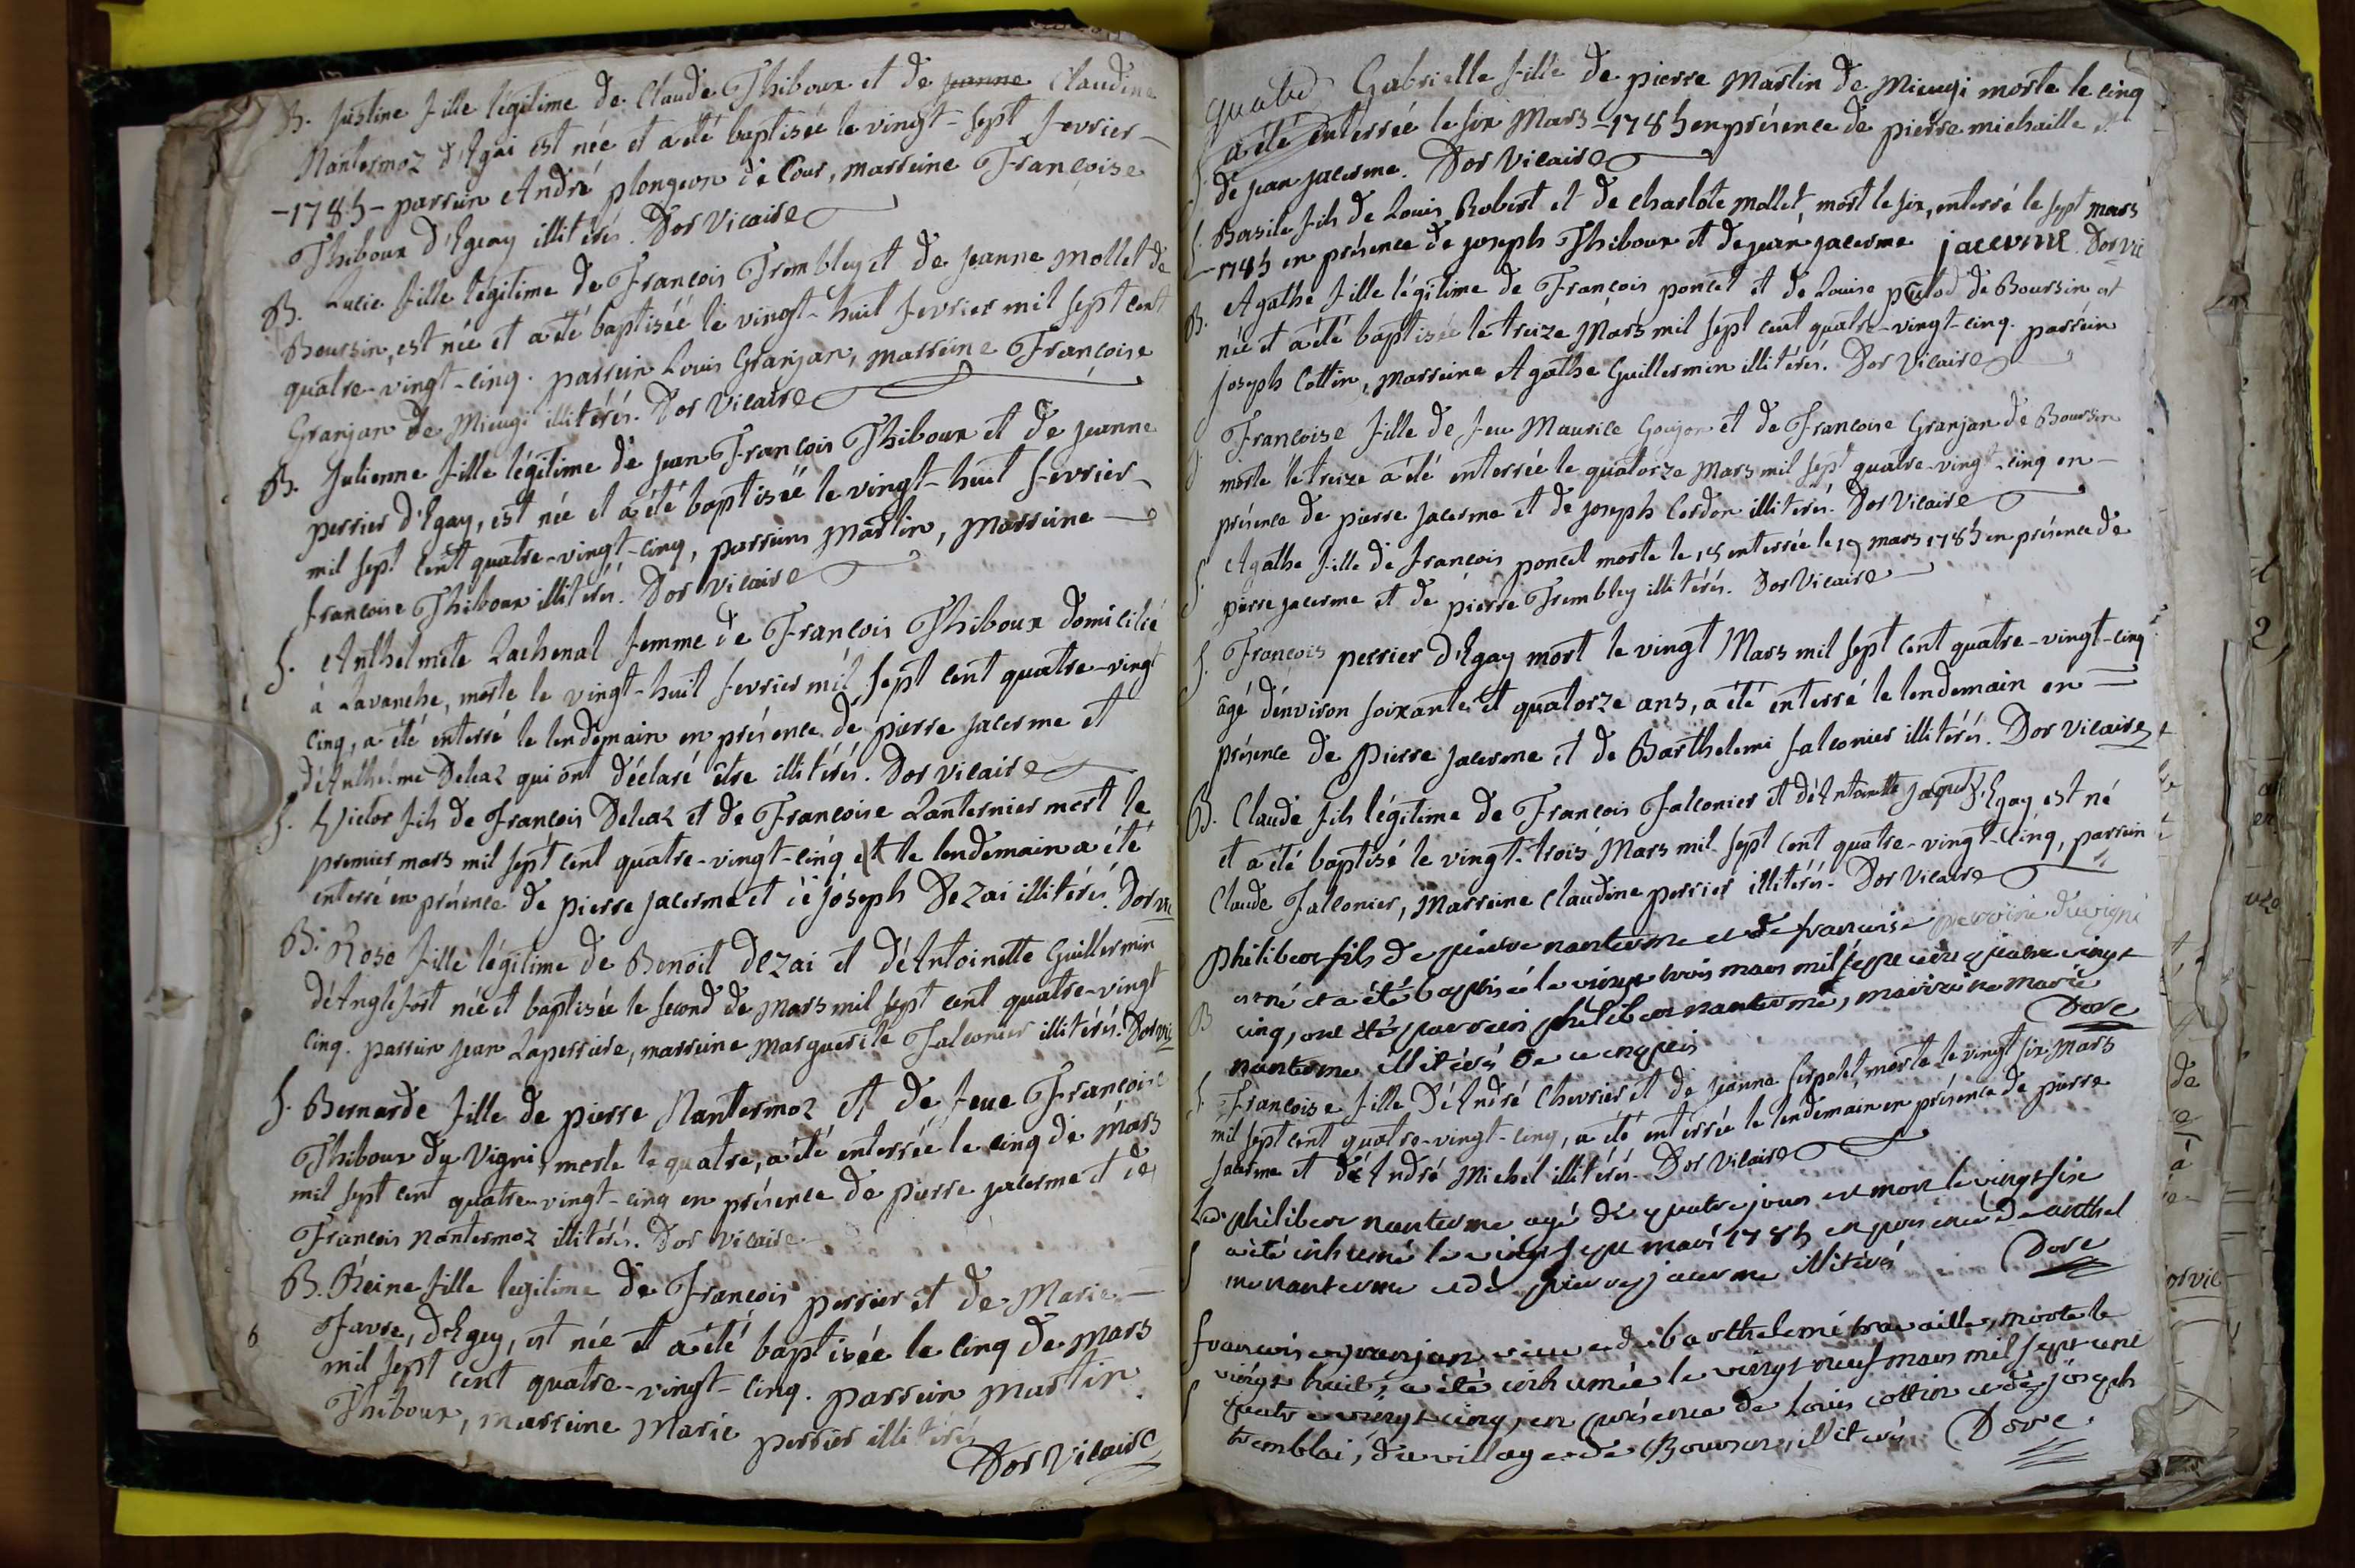 B. Justine fille légitime de Claude Thiboux et de Jeanne Claudine
Nantermoz d'Egai est née et a été baptisée le vingt-sept fevrier
-1785- parrein André plongeon de Cour, marreine Françoise
Thiboux d'Egay illitérés. Dor Vicaire
B. Lucie fille légitime de François Trembley et de Jeanne Mollet de
Boursin, est née et a été baptisée le vingt-huit fevrier mil sept cent
quatre-vingt-cinq. parrein Louis Granjan, marreine Françoise
Granjan de Mieugi illitérés. Dor Vicaire
B. Julienne fille légitime de jean François Thiboux et de jeanne
perrier d'Egay, est née et a été baptisée le vingt-huit fevrier
mil sept cent quatre-vingt-cinq, parrein Martin, Marreine
francoise Thiboux illitérés. Dor Vicaire
S. Anthelmete Lachenal femme de François Thiboux domicilié
à Lavanche, morte le vingt-huit fevrier mil sept cent quatre-vingt
cinq, a été enterré le lendemain en présence de pierre jacerme et
d'Anthelme Deleaz qui ont déclaré être illitérés. Dor vicaire
S. Victor fils de François Deleaz et de Françoise Lanternier mort le
premier mars mil sept cent quatre-vingt-cinq et le lendemain a été
enterré en présence de pierre jacerme et de joseph Dezai illitérés. Dor vic
B. Rose fille légitime de Benoit dezai et d'Antoinette Guillermin
d'Anglefort née et baptisée le second de Mars mil sept cent quatre-vingt
cinq. parrein jean Laperriere, marreine Marguerite Falconier illitérés. Dor vic
S. Bernarde fille de pierre Nantermoz et de feue Françoise
Thiboux du Vigni, morte le quatre, a été enterrée le cinq de Mars
mil sept cent quatre-vingt-cinq en présence de pierre jacerme et de
François Nantermoz illitérés. Dor Vicaire
B. Reine fille legitime de François perrier et de Marie
Favre, d'Egey, est née et a été baptisée le cinq de Mars
mil sept cent quatre-vingt-cinq. parrein Martin
Thiboux, marreine Marie perrier illitérés
Dor Vicaire
Gabrielle fille de pierre Martin de Mieugi morte le cinq
a été enterrée le six Mars -1785 en présence de pierre michaille et
de jean jacerme. Dor Vicaire
S. Basile fils de Louis Robert et de charlote mollet, mort le six, enterré le sept mars
-1785 en présence de joseph Thiboux et de jean jacerme jacerme. Dor vic
B. Agathe fille légitime de François poncet et de Louise de Boursin est
née et a été baptisée le treize Mars mil sept cent quatre-vingt-cinq. parrein
joseph Cottin, Marreine Agathe Guillermin illitérés. Dor Vicaire
S. Francoise fille de feu Maurice Goujon et de Francoise Granjan de Boursin
morte le treize a été enterrée le quatorze Mars mil sept quatre-vingt-cinq en
présence de pierre jacerme et de joseph Cerdon illiterés. Dor Vicaire
S. Agathe fille de francois poncet morte le enterrée le 19 mars 1785 en présence de
pierre jacerme et de pierre Trembley illitérés. Dor Vicaire
S. François perrier d'Egay mort le vingt Mars mil sept cent quatre-vingt-cinq
âgé d'environ soixante et quatorze ans, a été enterré le lendemain en
présence de Pierre jacerme et de Barthelemi falconier illitérés. Dor Vicaire
B. Claude fils légitime de François Falconier et d'Antoinette d'Egay est né
et a été baptisé le vingt-trois Mars mil sept cent quatre-vingt-cinq, parrein
Claude Falconier, Marreine Claudine perrier illitérés. Dor Vicaire
philiber fils de pierre nanterme et de francoise perroine du vigni
B est né et a été baptisé le vingt trois mars mil sept cent quatre vingt
cinq, ont été parrein philiber nanterme, marreine marie
nanterme illitérés de ce enquis Dore
S. Françoise fille d'André Chevrier et de jeanne serpolet, morte le vingt six Mars
mil sept cent quatre-vingt-cinq, a été enterrée le lendemain en présence de pierre
jacerme et d'André Michel illitérés. Dor Vicaire
Led. philiber nanterme agé de quatre jours est mort le vingt six
S a été inhumé le vingt sept mars 1785 en présence de anthel
me nanterme et de pierre jacerme illitérés Dore
francoise granjan veuve de barthelemi travaille, morte le
vingt huit, a été inhumée le vingt neuf mars mil sept cent
S quatre vingt cinq, en présence de Louis cottin et de joseph
tremblai, du village de Boursin, illiterés Dore